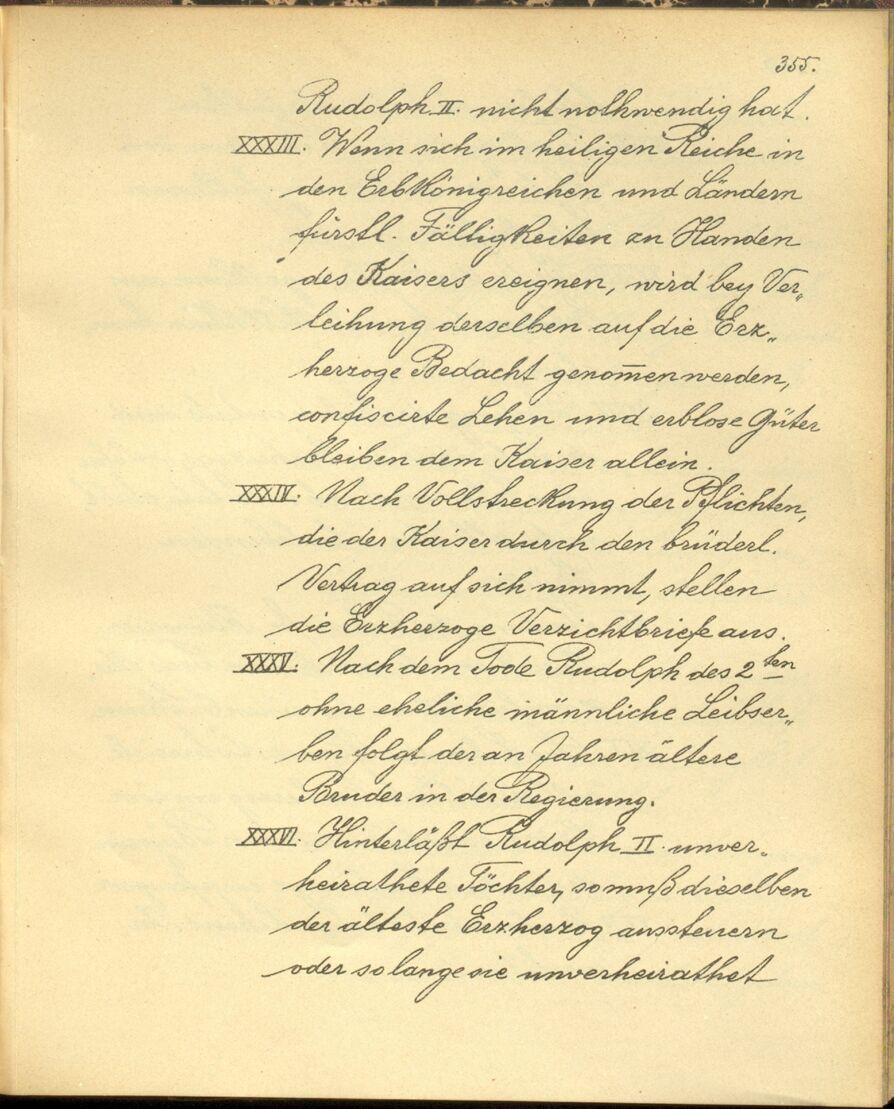 355.
Rudolph II. nicht nothwendig hat.
XXXIII. Wenn sich im heiligen Reiche in
den Erbkönigreichen und Ländern
fürstl. Fälligkeiten zu Handen
des Kaisers ereignen, wird bey Ver„
leihung derselben auf die Erz„
herzoge Bedacht genom̅en werden,
confiscirte Lehen und erblose Güter
bleiben dem Kaiser allein.
XXXIV. Nach Vollstreckung der Pflichten,
die der Kaiser durch den brüderl.
Vertrag auf sich nimmt, stellen
die Erzherzoge Verzichtbriefe aus.
XXXV. Nach dem Tode Rudolph des 2ten
ohne eheliche männliche Leibser„
ben folgt der an Jahren ältere
Bruder in der Regierung.
XXXVI. Hinterläßt Rudolph II. unver„
heirathete Töchter, so muß dieselben
der älteste Erzherzog aussteuern
oder so lange sie unverheirathet